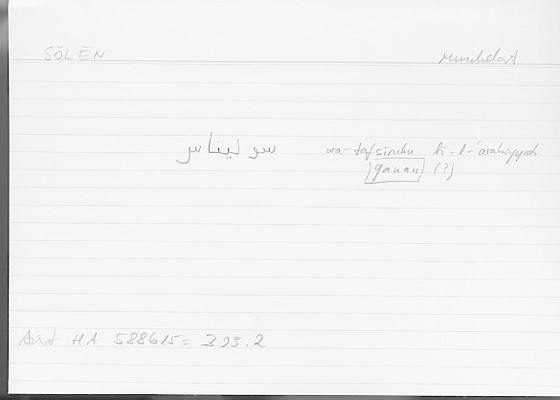 SŌLĒN
Muschelart
سوليناس wa-tafsīruhu bi-l-ʿarabiyyah
qanan (?)
Arist HA 588b15 = 393.2